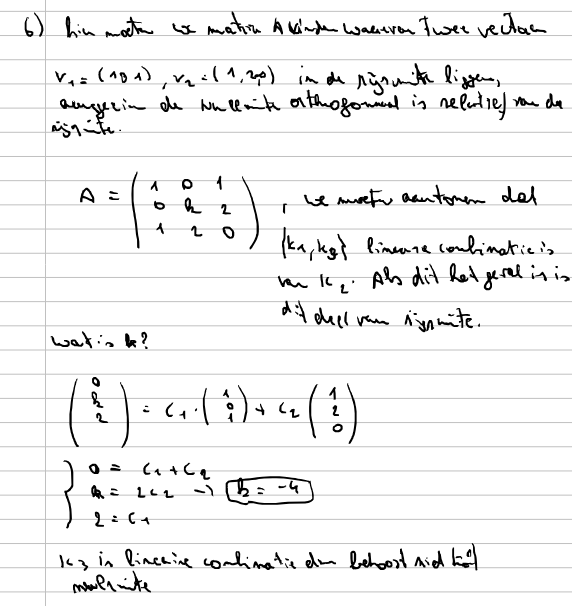 6) hier moeten we matrix A vinden waarvan twee vectoren
v₁ = (1 0 1), v₂ = (1, 2, 0) in de rijruimte liggen,
aangezien de nulruimte orthogonaal is relatief van de
rijruimte.
A = ( 1 0 1 ; 0 k 2 ; 1 2 0 ) , we moeten aantonen dat
{k₁, k₃} lineaire combinatie is
van k₂. Als dit het geval is is
dit deel van rijruimte.
wat is k?
( 0 k 2 ) = c₁ · ( 1 0 1 ) + c₂ ( 1 2 0 )
0 = c₁ + c₂
k = 2c₂ → k = -4
2 = c₁
k₃ is lineaire combinatie dus behoort niet tot
nulruimte